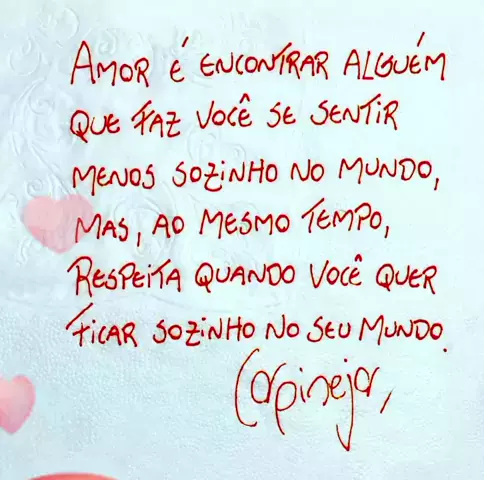 AMOR É ENCONTRAR ALGUÉM
QUE FAZ VOCÊ SE SENTIR
MENOS SOZINHO NO MUNDO,
MAS, AO MESMO TEMPO,
RESPEITA QUANDO VOCÊ QUER
FICAR SOZINHO NO SEU MUNDO.
Carpinejar,